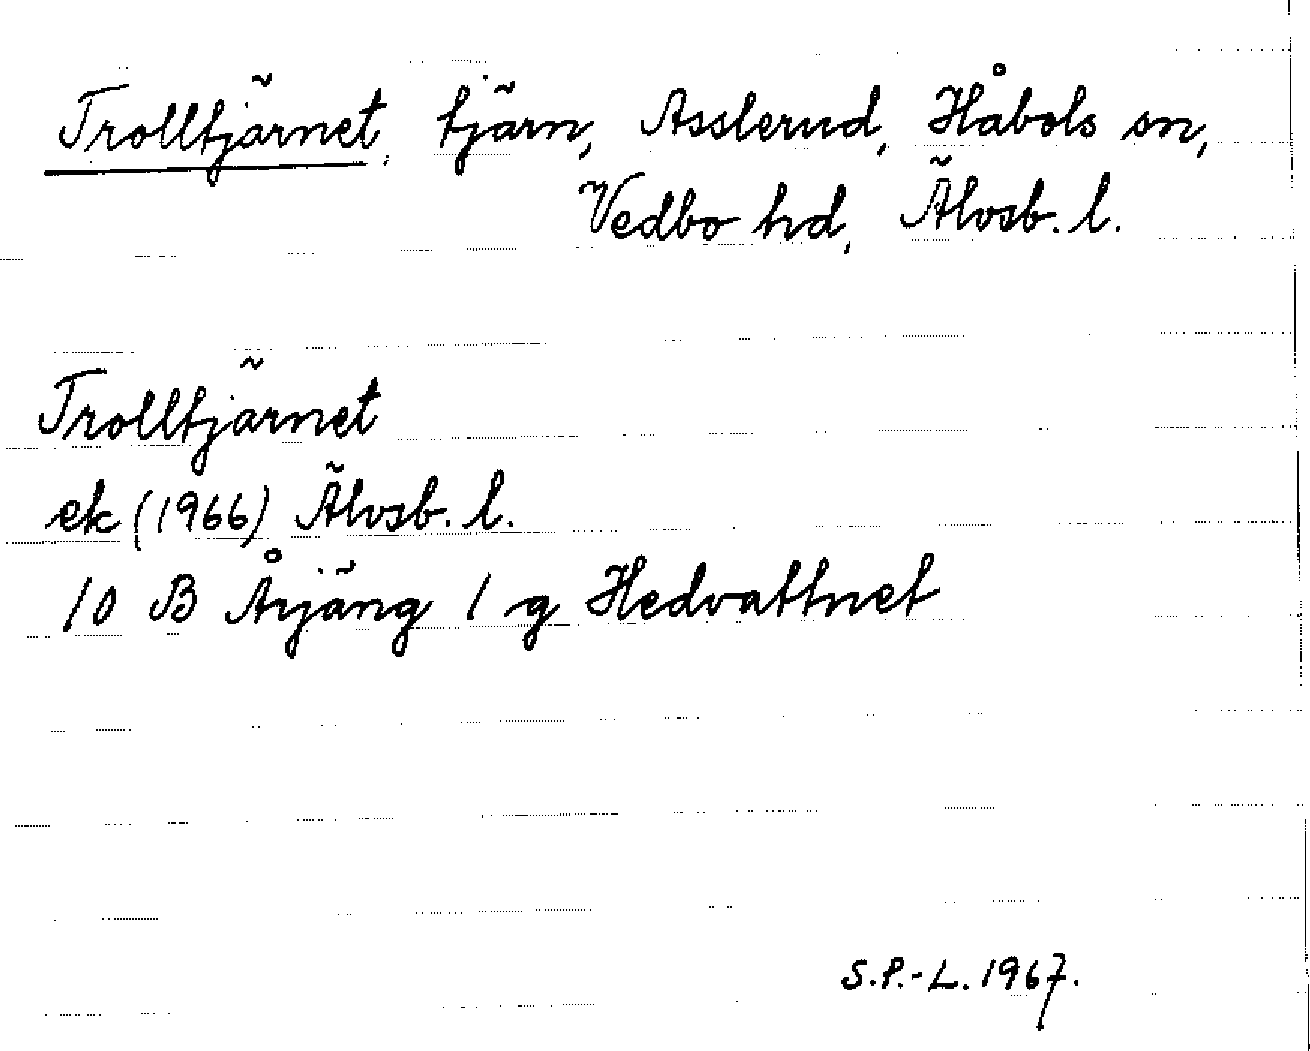 Trolltjärnet, tjärn, Asslerud, Håbols sn,
Vedbo hd, Älvsb. l.
Trolltjärnet
ek (1966) Älvsb. l.
10 B Årjäng 1 g Hedvattnet
S.P.-L. 1967.